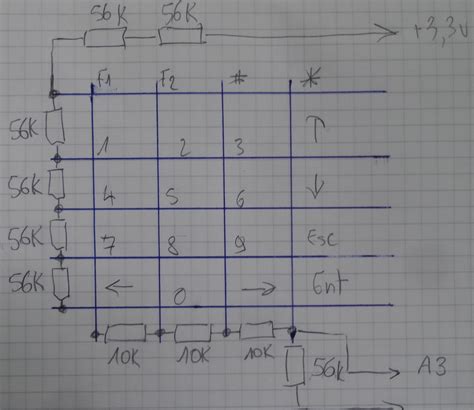 56K 56K
+3,3v
F1 F2 # *
56K
1 2 3 ↑
56K
4 5 6 ↓
56K
7 8 9 Esc
56K
← 0 → Ent
10K 10K 10K 56K A3